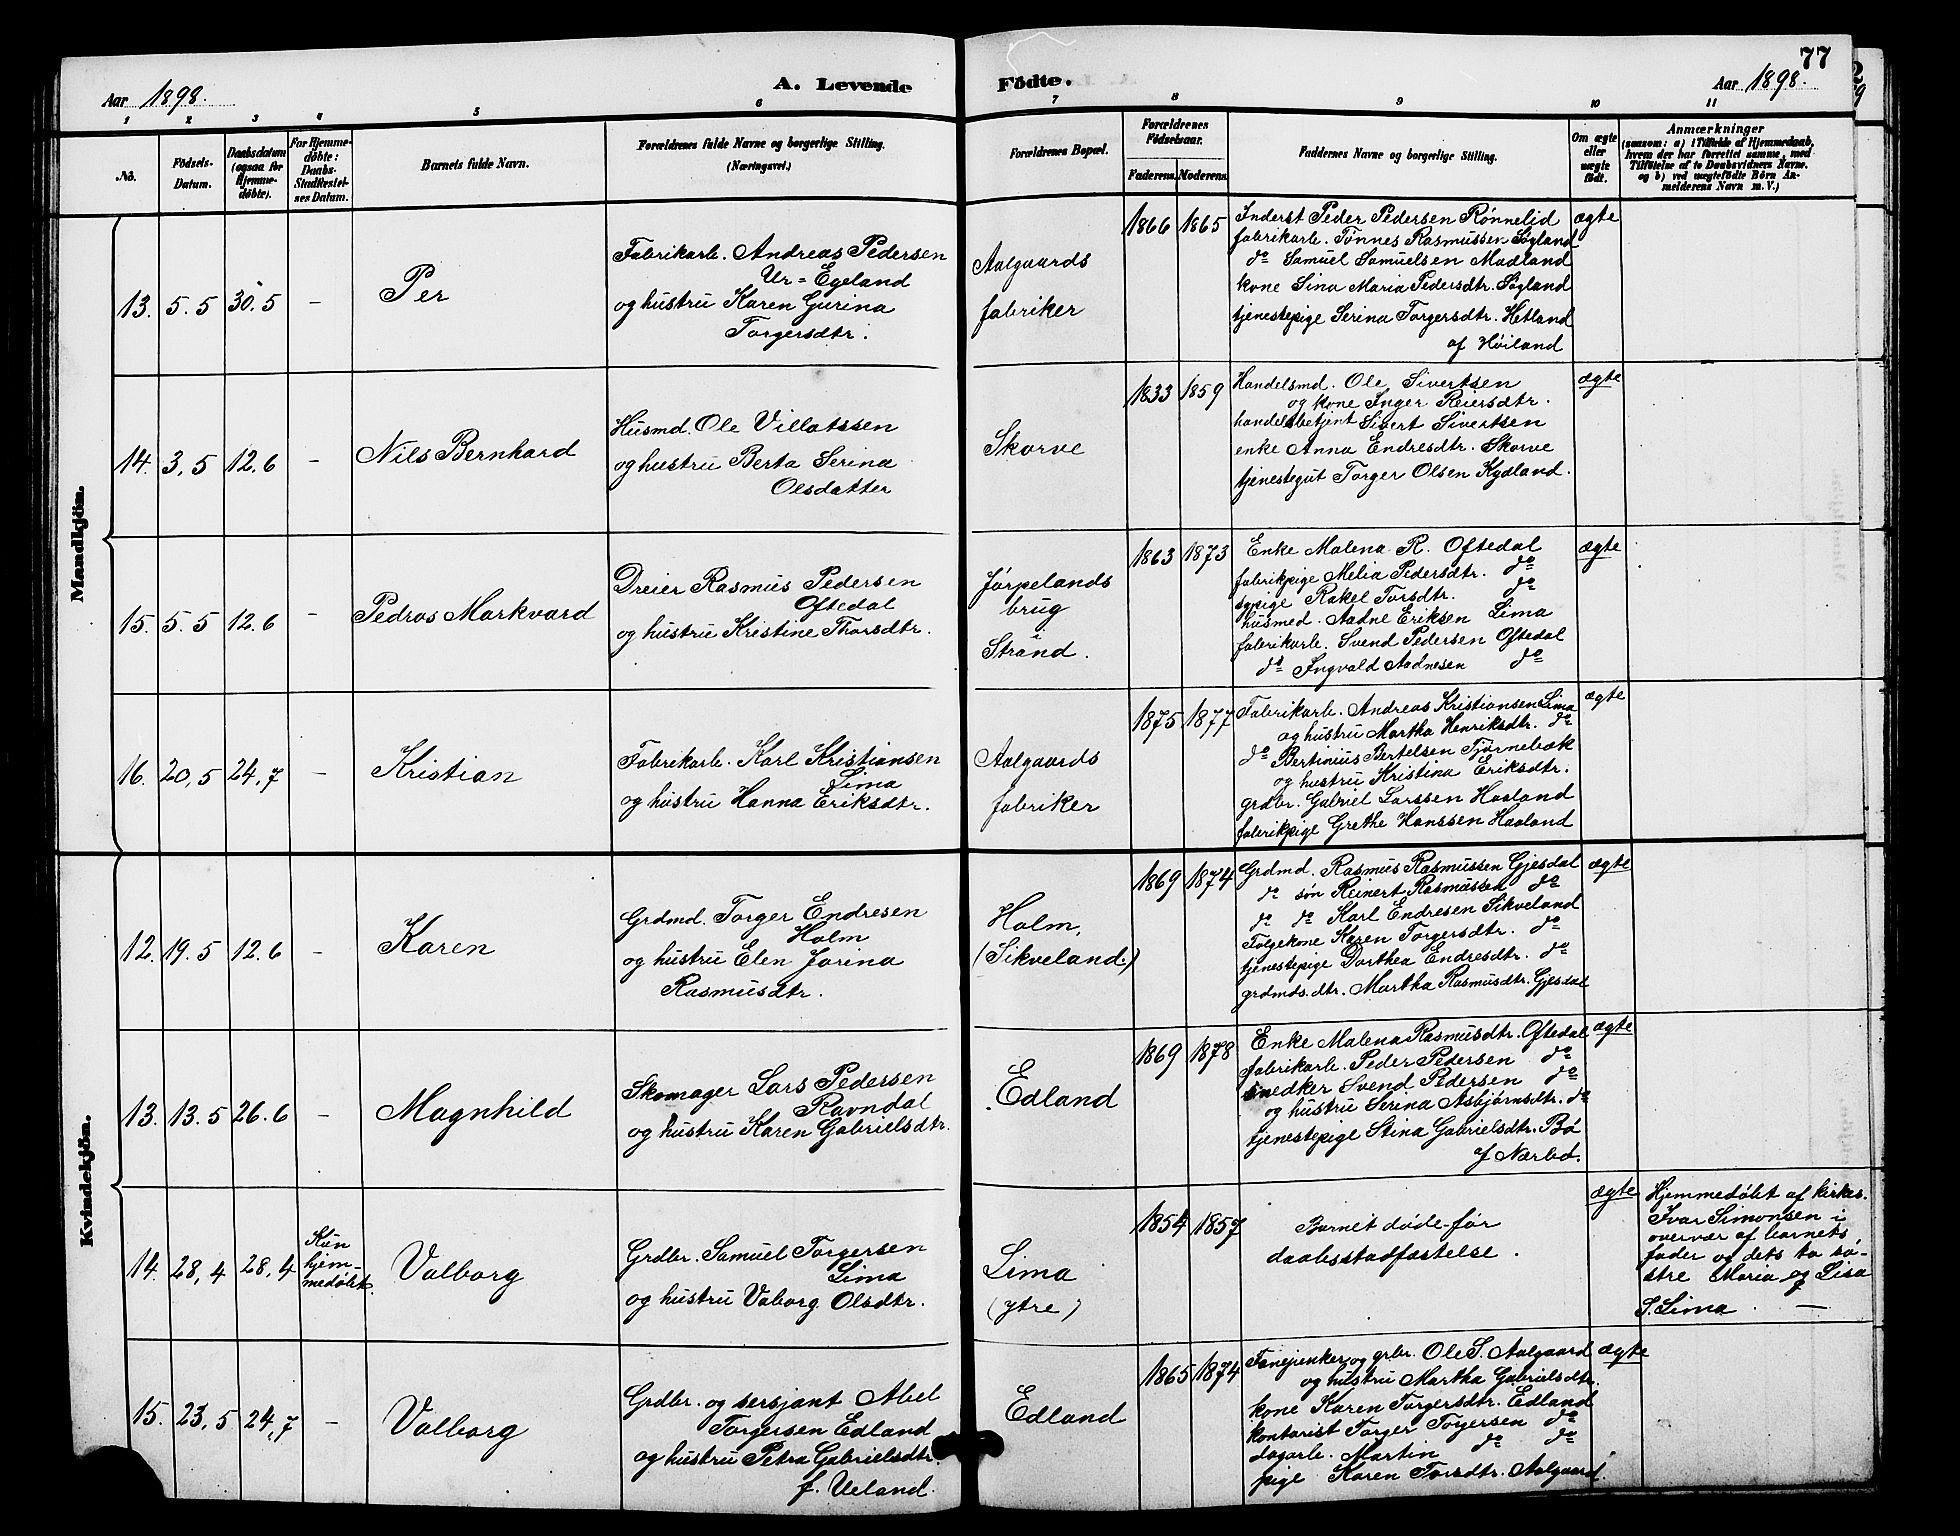 77
Aar 1898.
A. Levende
Födte.
Aar 1898.
1 2 3 4 5 6 7 8 9 10 11
No.
Födsels-
Datum.
Daabsdatum
(ogsaa for
Hjemme-
døbte).
For Hjemme-
døbte:
Daabs-
Stadfæstel-
ses Datum.
Barnets fulde Navn.
Forældrenes fulde Navne og borgerlige Stilling.
(Næringsvei.)
Forældrenes Bopæl.
Forældrenes
Fødselsaar.
Faderens. Moderens.
Faddernes Navne og borgerlige Stilling.
Om ægte
eller
uægte
født.
Anmærkninger
(saasom: a) i Tilfælde af Hjemmedaab,
hvem der har forrettet samme, med
Tilføielse af to Daabsvidners Navne,
og b) ved uægtefødte Börn An-
melderens Navn m. V.)
Mandkjön.
13. 5.5 30.5 –
Per
Fabrikarb. Andreas Pedersen
Ur=Egeland
og hustru Karen Gurina
Torgersdtr.
Aalgaards
fabriker
1866 1865
Inderst Peder Pedersen Rönnelid
fabrikarb. Tönnes Rasmussen Søgland
do Samuel Samuelsen Madland
kone Sina Maria Pedersdtr. Søgland
tjenestepige Serina Torgersdtr. Hetland
af Høiland
ægte
14. 3,5 12.6 –
Nils Bernhard
Husmd. Ole Villatssen
og hustru Berta Serina
Olsdatter
Skorve
1833 1859
Handelsmd. Ole Sivertsen
og kone Inger Reiersdtr.
handelsbetjent Sivert Sivertsen
enke Anna Endresdtr. Skorve
tjenestegut Torger Olsen Kydland.
ægte
15. 5.5 12.6 –
Pedros Markvard
Dreier Rasmus Pedersen
Oftedal
og hustru Kristine Thorsdtr.
Jørpelands
brug
Strand.
1863 1873
Enke Malena R. Oftedal
fabrikpige Melia Pedersdtr. do
sypige Rakel Torsdtr. do
husmed. Aadne Eriksen Lima
fabrikarb. Svend Pedersen Oftedal
do Ingvald Aadnesen do
ægte
16. 20,5 24,7 –
Kristian
Fabrikarb. Karl Kristiansen
Lima
og hustru Hanna Eriksdtr.
Aalgaards
fabriker
1875 1877
Fabrikarb. Andreas Kristiansen Lima
og hustru Martha Henriksdtr. do
do Bertinius Bertelsen Tjörnebæk
og hustru Kristina Eriksdtr.
grdbr. Gabriel Larssen Haaland
fabrikpige Grethe Hanssen Haaland
ægte
Kvindekjön.
12. 19.5 12.6 –
Karen
Grdmd. Torger Endresen
Holm
og hustru Elen Jorina
Rasmusdtr.
Holm,
(Sikveland.)
1869 1874
Grdmd. Rasmus Rasmussen Gjesdal
do søn Reinert Rasmussen do
do do Karl Endresen Sikveland
Følgekone Karen Torgersdtr. do
tjenestepige Dorthea Endresdtr. do
grdmds.dtr. Martha Rasmusdtr. Gjesdal
ægte
13. 13.5 26.6 –
Magnhild
Skomager Lars Pedersen
Ravndal
og hustru Karen Gabrielsdtr.
Edland
1869 1878
Enke Malena Rasmusdtr. Oftedal
fabrikarb. Peder Pedersen do
snedker Svend Pedersen do
og hustru Serina Asbjørnsdtr. do
tjenestepige Stina Gabrielsdtr. Bø
af Nærbø.
ægte
14. 28,4 28,4
Kun
hjem-
medøbt.
Valborg
Grdbr. Samuel Torgersen
Lima
og hustru Vaborg Olsdtr.
Lima
(ytre)
1854 1857
Barnet døde før
daabsstadfæstelse.
ægte
Hjemmedøbt af kirkes.
Ivar Simonsen i
overvær af barnets
fader og dets to sø-
stre Maria og Lisa
S. Lima. —
15. 23,5 24,7 –
Valborg
Grdbr. og sersjant Abel
Torgersen Edland
og hustru Petra Gabrielsdtr.
f. Ueland.
Edland
1865 1874
Fanejunker og grbr. Ole S. Aalgaard
og hustru Martha Gabrielsdtr.
kone Karen Torgersdtr. Edland
kontorist Torger Torgersen do
dagarb. Martin do do
pige Karen Torsdtr. Aalgaard.
ægte